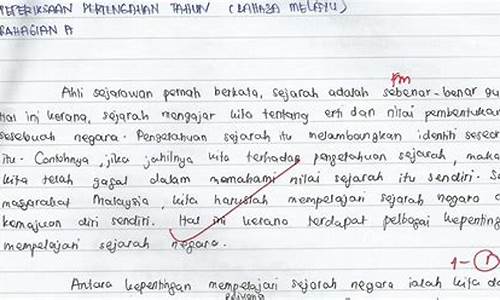 PEPERIKSAAN PERTENGAHAN TAHUN (BAHASA MELAYU)
BAHAGIAN A
Ahli sejarawan pernah berkata, sejarah adalah sebenar-benar gu
Hal ini kerana, sejarah mengajar kita tentang erti dan nilai pembentukan
sesebuah negara. Pengetahuan sejarah itu melambangkan identiti seseor
itu. Contohnya, jika jahilnya kita terhadap pengetahuan sejarah, maka
kita telah gagal dalam memahami nilai sejarah itu sendiri. Se
masyarakat Malaysia, kita haruslah mempelajari sejarah negara d
kemajuan diri sendiri. Hal ini kerana terdapat pelbagai kepenting
mempelajari sejarah negara.
1-1
Antara kepentingan mempelajari sejarah negara ialah kita da